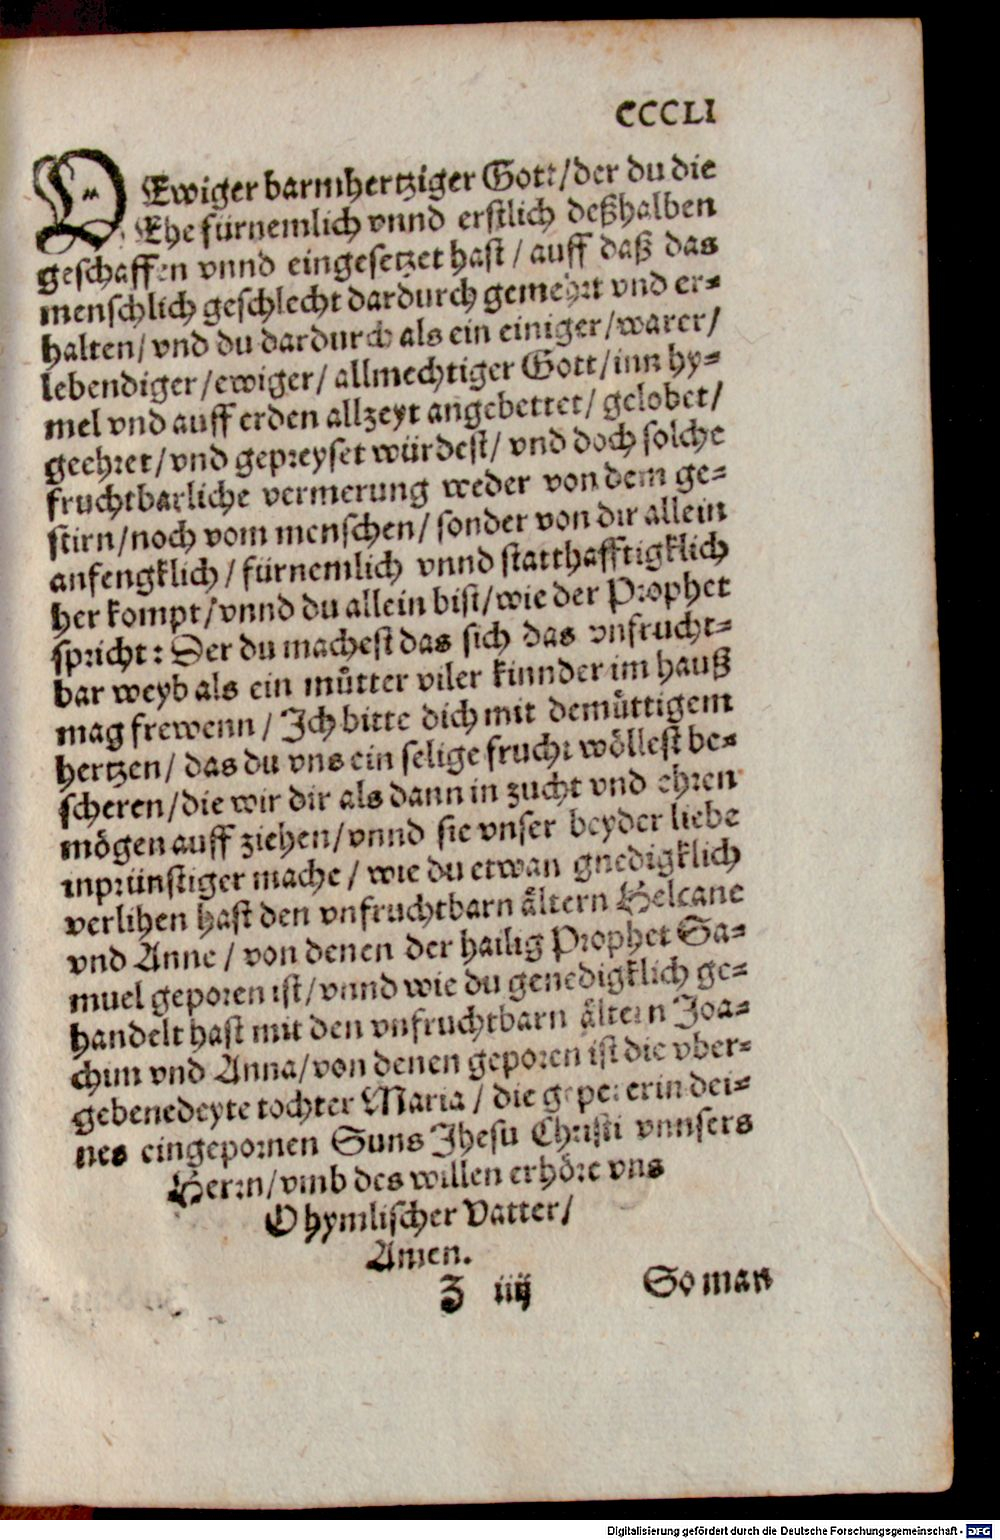 CCCLI
O Ewiger barmhertziger Gott/der du die
Ehe fürnemlich vnnd erstlich deßhalben
geschaffen vnnd eingesetzet hast / auff daß das
menschlich geschlecht dardurch gemehrt vnd er-
halten/ vnd du dardurch als ein einiger/warer/
lebendiger/ewiger/ allmechtiger Gott/inn hy-
mel vnd auff erden allzeyt angebettet/ gelobet/
geehret/vnd gepreyset würdest/ vnd doch solche
fruchtbarliche vermerung weder von dem ge-
stirn/noch vom menschen/ sonder von dir allein
anfengklich / fürnemlich vnnd statthafftigklich
her kompt/vnnd du allein bist/wie der Prophet
spricht: Der du machest das sich das vnfrucht-
bar weyb als ein můtter viler kinnder im hauß
mag frewenn / Ich bitte dich mit demůttigem
hertzen/ das du vns ein selige frucht wöllest be-
scheren/die wir dir als dann in zucht vnd ehren
mögen auff ziehen/vnnd sie vnser beyder liebe
inprünstiger mache / wie du etwan gnedigklich
verlihen hast den vnfruchtbarn ältern Helcane
vnd Anne / von denen der hailig Prophet Sa-
muel geporen ist/vnnd wie du genedigklich ge-
handelt hast mit den vnfruchtbarn ältern Joa-
chim vnd Anna/von denen geporen ist die vber-
gebenedeyte tochter Maria / die gepererin dei-
nes eingepornen Suns Jhesu Christi vnnsers
Herrn/vmb des willen erhöre vns
O hymlischer Vatter/
Amen.
Z iiij So man
Digitalisierung gefördert durch die Deutsche Forschungsgemeinschaft - DFG